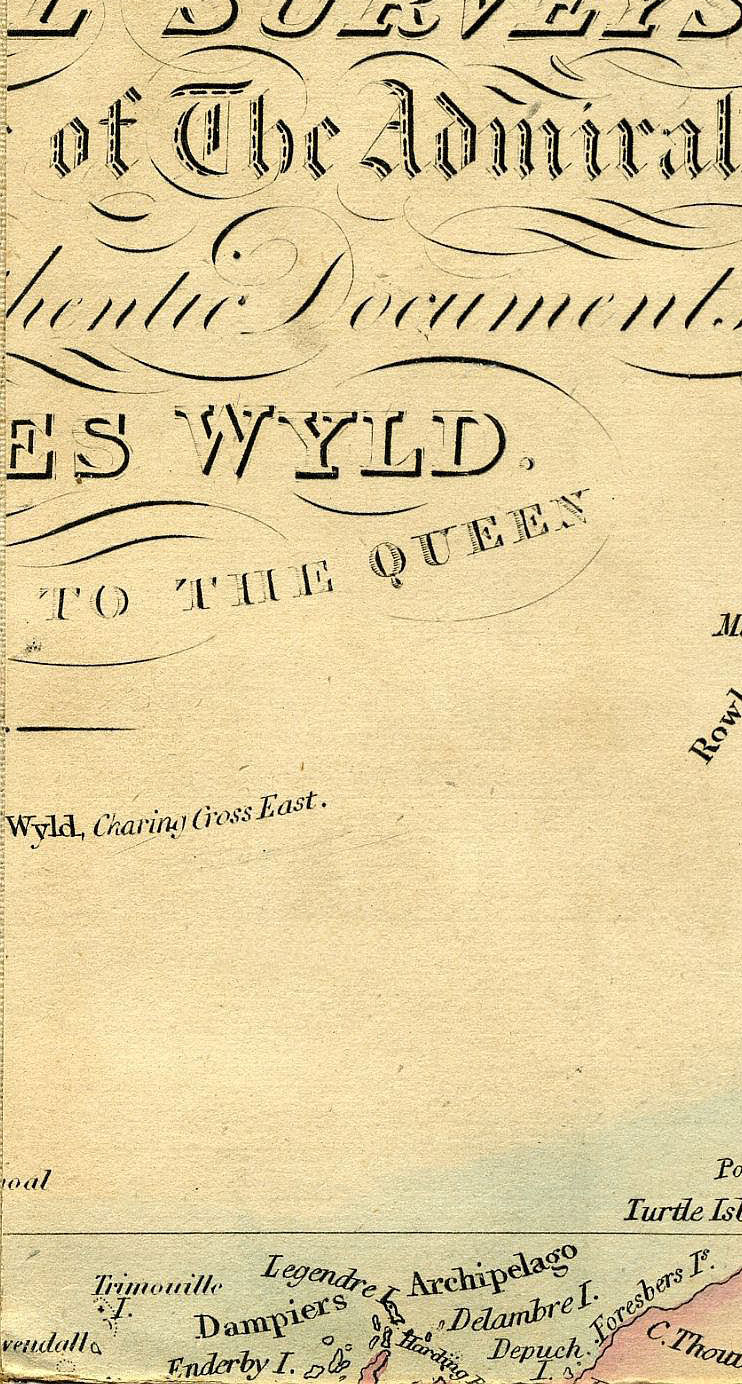 L SURVEYS
of The Admiral
hentic Document.
ES WYLD.
TO THE QUEEN
Rowl
Wyld, Charing Cross East.
oal
Po
Turtle Isl
Trimouille I.
Legendre I.
Dampiers Archipelago
Delambre I.
Foresbers Is.
wendall
Enderby I.
Harding
Depuch I.
C. Thou